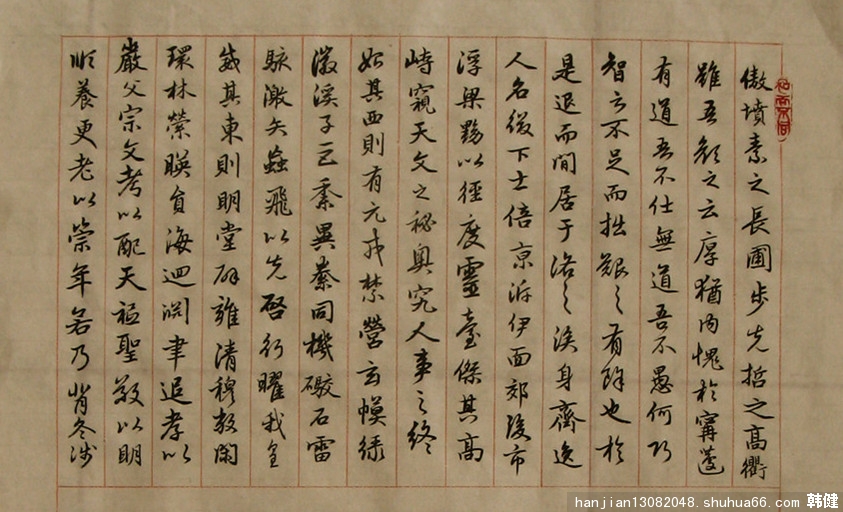 傲墳素之長圃步先哲之高衢
雖吾顏之云厚猶內愧於甯蘧
有道吾不仕無道吾不愚何巧
智之不足而拙艱之有餘也於
是退而閒居于洛之涘身齊逸
人名綴下士倍京泝伊面郊後市
浮梁黝以徑度靈臺傑其高
峙窺天文之秘奧究人事之終
始其西則有元戎禁營玄幙綠
徽溪子巨黍異絭同機礮石雷
駭激矢蝱飛以先啓行曜我皇
威其東則明堂辟雍清穆敞閑
環林縈映員海迴淵聿追孝以
嚴父宗文考以配天祗聖敬以明
順養更老以崇年若乃背冬涉
hanjian13082048.shuhua66.com 韩健